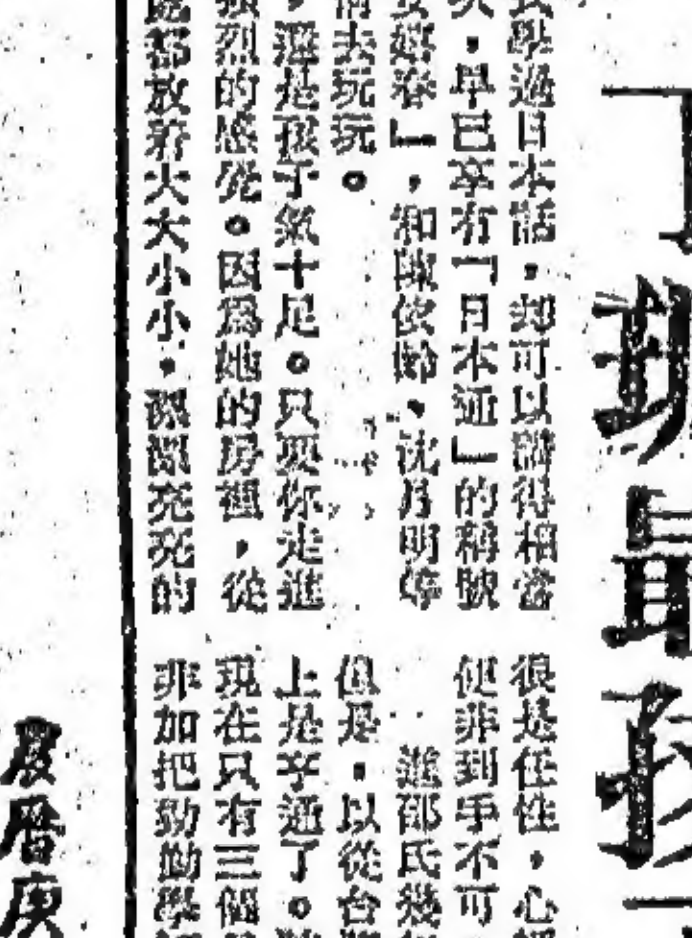 丁珮最孩
學過日本話，却可以講得相當
早已享有「日本通」的稱號
春」，和陳依齡、沈月明等
前去玩玩。
，還是孩子氣十足。只要你走進
強烈的感覺。因爲她的房裡，從
處都放着大大小小，漂漂亮亮的
很是任性，心
便非到手不可
進邵氏幾
但是，以從台
上是亨通了。
現在只有三個
非加把勁勤學
農曆庚